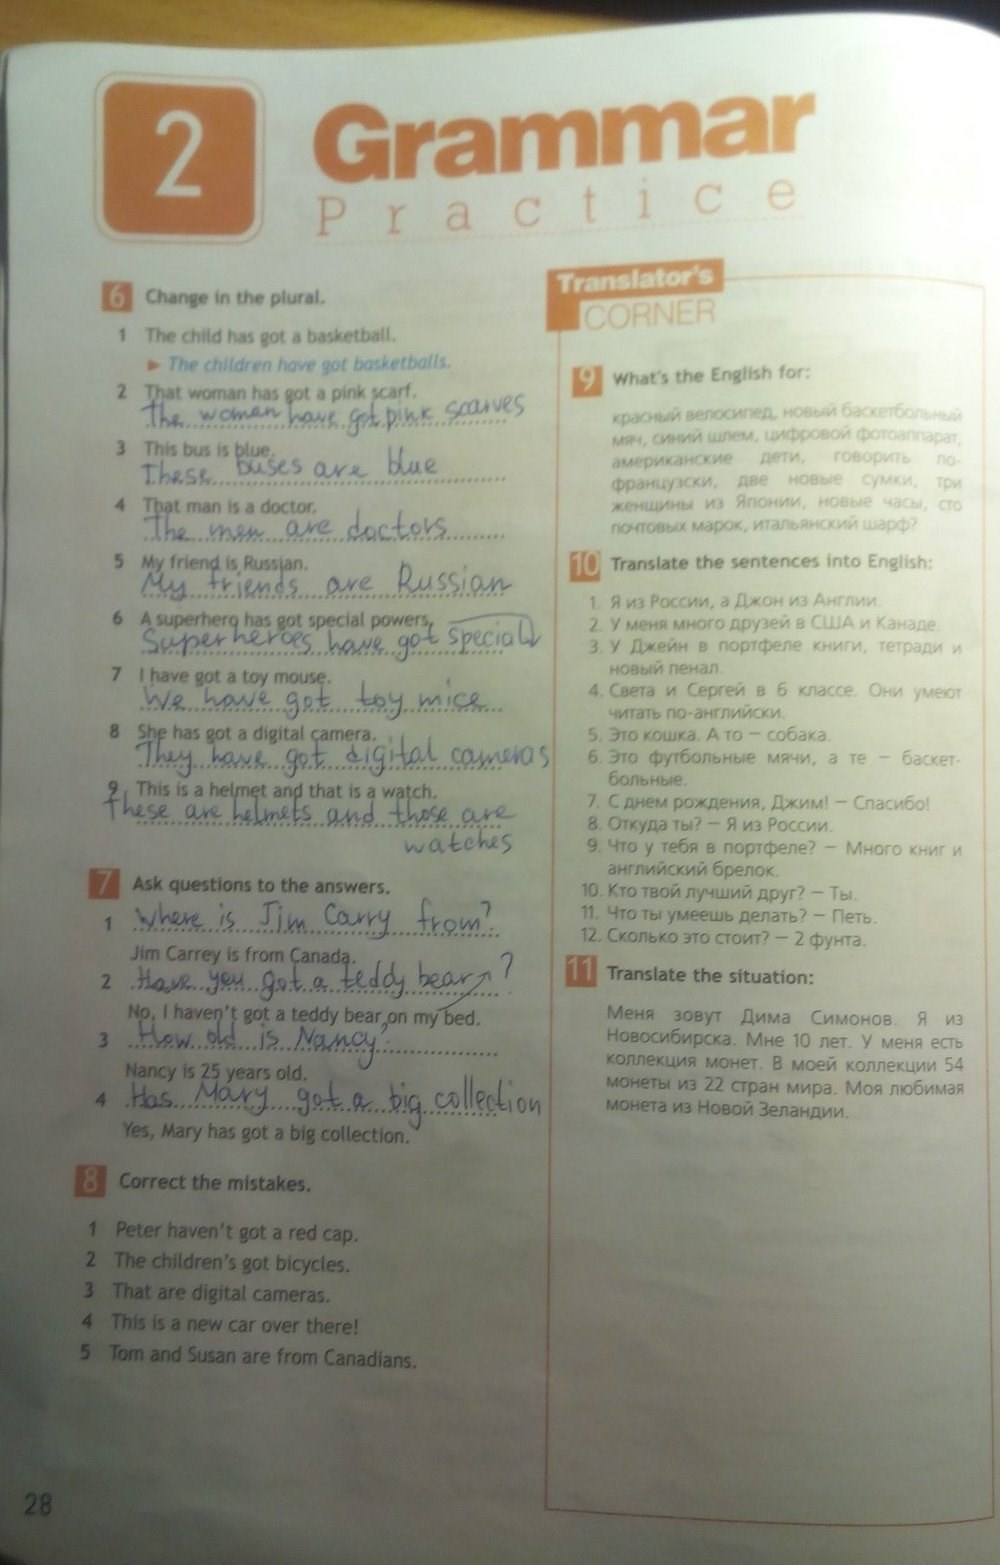 2
Grammar
Practice
6 Change in the plural.
1 The child has got a basketball.
► The children have got basketballs.
2 That woman has got a pink scarf.
The women have got pink scarves
3 This bus is blue.
These buses are blue
4 That man is a doctor.
The men are doctors
5 My friend is Russian.
My friends are Russian
6 A superhero has got special powers.
Superheroes have got special
7 I have got a toy mouse.
We have got toy mice
8 She has got a digital camera.
They have got digital cameras
9 This is a helmet and that is a watch.
These are helmets and those are
watches
7 Ask questions to the answers.
1 Where is Jim Carry from?
Jim Carrey is from Canada.
2 Have you got a teddy bear ?
No, I haven't got a teddy bear on my bed.
3 How old is Nancy?
Nancy is 25 years old.
4 Has Mary got a big collection
Yes, Mary has got a big collection.
8 Correct the mistakes.
1 Peter haven't got a red cap.
2 The children's got bicycles.
3 That are digital cameras.
4 This is a new car over there!
5 Tom and Susan are from Canadians.
28
Translator's
CORNER
9 What's the English for:
красный велосипед, новый баскетбольный
мяч, синий шлем, цифровой фотоаппарат,
американские дети, говорить по-
французски, две новые сумки, три
женщины из Японии, новые часы, сто
почтовых марок, итальянский шарф?
10 Translate the sentences into English:
1. Я из России, а Джон из Англии.
2. У меня много друзей в США и Канаде.
3. У Джейн в портфеле книги, тетради и
новый пенал.
4. Света и Сергей в 6 классе. Они умеют
читать по-английски.
5. Это кошка. А то – собака.
6. Это футбольные мячи, а те – баскет-
больные.
7. С днем рождения, Джим! – Спасибо!
8. Откуда ты? – Я из России.
9. Что у тебя в портфеле? – Много книг и
английский брелок.
10. Кто твой лучший друг? – Ты.
11. Что ты умеешь делать? – Петь.
12. Сколько это стоит? – 2 фунта.
11 Translate the situation:
Меня зовут Дима Симонов. Я из
Новосибирска. Мне 10 лет. У меня есть
коллекция монет. В моей коллекции 54
монеты из 22 стран мира. Моя любимая
монета из Новой Зеландии.